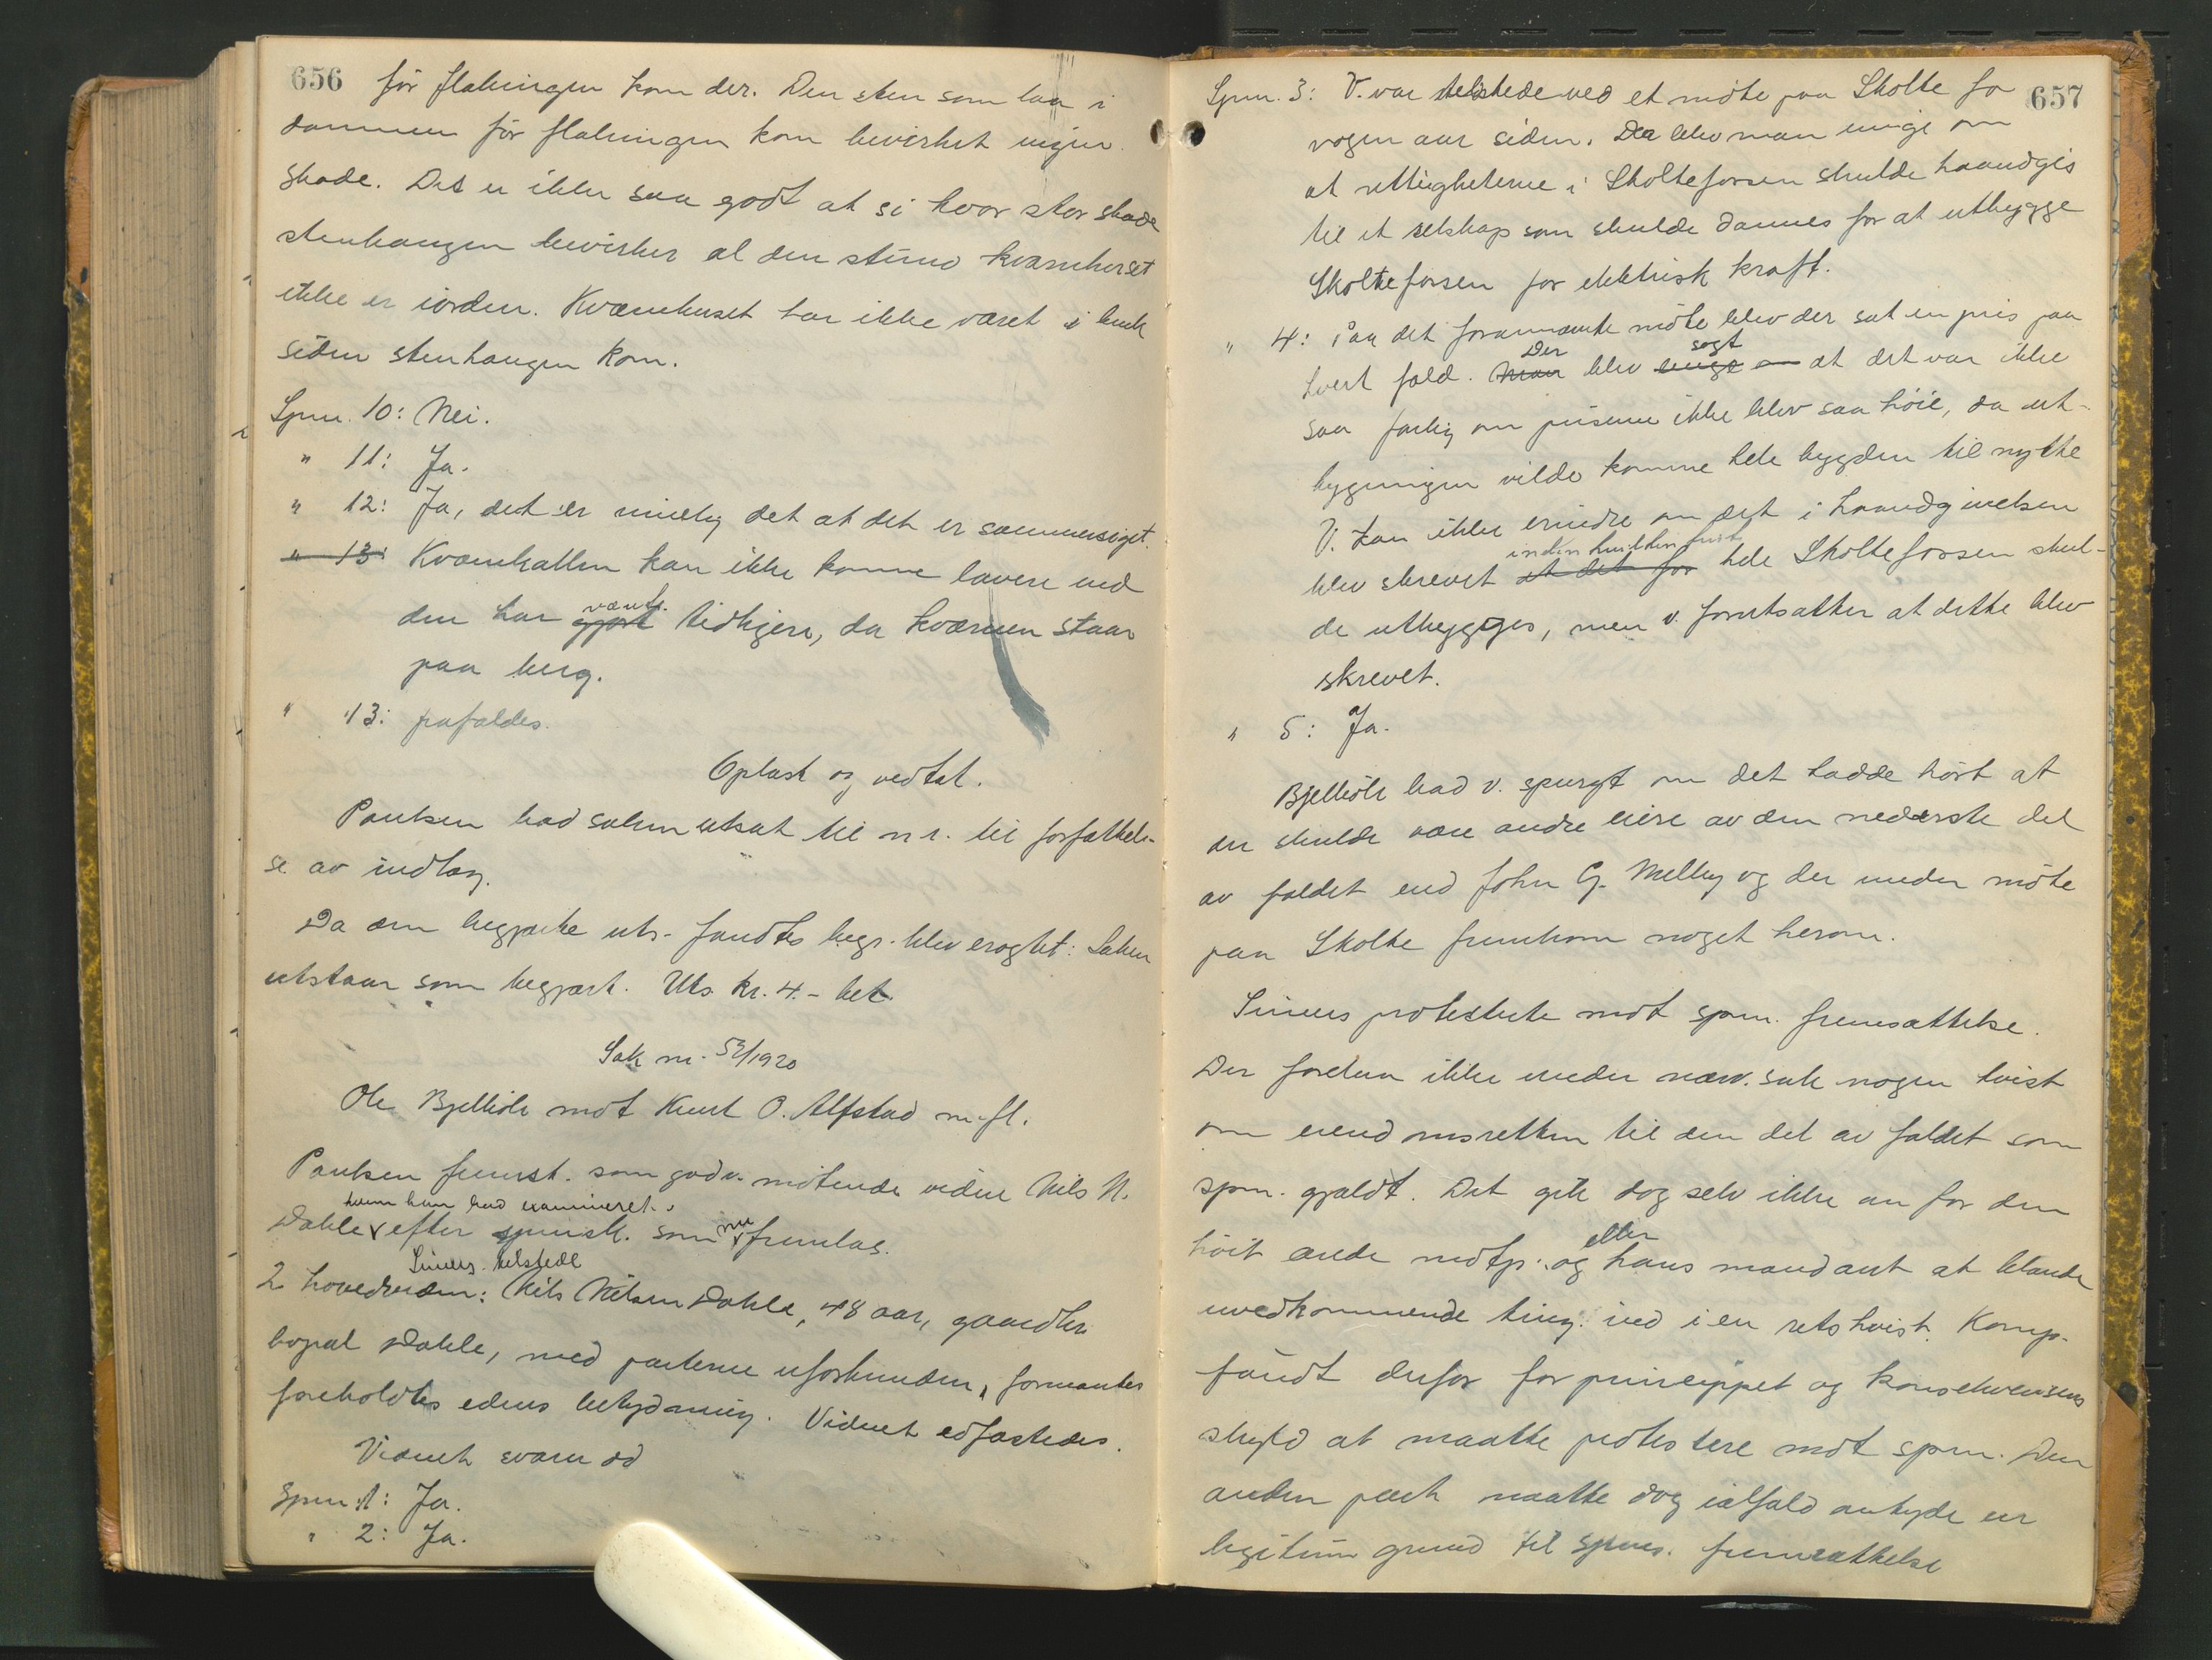 656
før fløtningen kom der. Den sten som laa i
dammen før fløtningen kom bevirket ingen
skade. Det er ikke saa godt at si hvor stor skade
stenhaugen bevirker al den stund kværnhuset
ikke er iorden. Kværnhuset har ikke været i bruk
siden stenhaugen kom.
Spm. 10: Nei.
" 11: Ja.
" 12: Ja, det er rimelig det at det er sammensiget.
" 13: Kværnkallen kan ikke komme lavere ned
den har gjort været tidligere, da kværnen staar
paa berg.
" 13: frafaldes.
Oplæst og vedtat.
Paulsen bad saken utsat til n. r. til forfattel-
se av indlæg.
Da den begjærte uts. fandtes begr. blev eragtet: Saken
utstaar som begjært. Uts. kr. 4.- bet.
Sak nr. 52/1920
Ole Bjelliöle mot Knut O. Alfstad m. fl.
Paulsen fremst. som godv. møtende vidne Nils N.
hvem han bad examineret
Dahle efter spmsk. som nu fremlas.
Sinens tilstede
2 hovedvidne: Nils Nilsen Dahle, 48 aar, gaardbr.
bopæl Dahle, med parterne uforbunden, formantes
foreholdtes edens betydning. Vidnet edfæstedes.
Vidnet svarer ad
Spm. 1: Ja.
" 2: Ja.
657
Spm. 3: V. var tilstede ved et møte paa Skolte for
nogen aar siden. Der blev man enige om
at rettigheterne i Skoltefossen skulde haandgis
til et selskap som skulde dannes for at utbygge
Skoltefossen for elektrisk kraft.
" 4: Paa det forannævnte møte blev der sat en pris paa
hvert fald. Man Der blev enige om sagt at det var ikke
saa farlig om priserne ikke blev saa høie, da ut-
bygningen vilde komme hele bygden til nytte
V. kan ikke erindre om det i haandgivelsen
blev skrevet at det før inden hvilken frist hele Skoltefossen skul-
de utbygges, men v. forutsætter at dette blev
skrevet.
" 5: Ja.
Bjelliöle bad v. spurgt om det hadde hørt at
der skulde være andre eiere av den nederste del
av faldet end John G. Melby og der under møte
paa Skolte fremkom noget herom.
Sinens protesterte mot spm. fremsættelse.
Der forelaa ikke under nærv. sak nogen tvist
om eiendomsretten til den del av faldet som
spm. gjældt. Det gik dog selv ikke an for den
høit ærede motp. og eller hans mandant at blande
uvedkommende ting ind i en retstvist. Komp.
fandt derfor for princippet og konsekvensens
skyld at maatte protestere mot spm. Den
anden part maatte dog ialfald antyde en
legitim grund til spms. fremsættelse